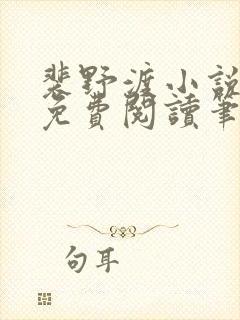 裴野渡小說
免費閱讀筆
句耳